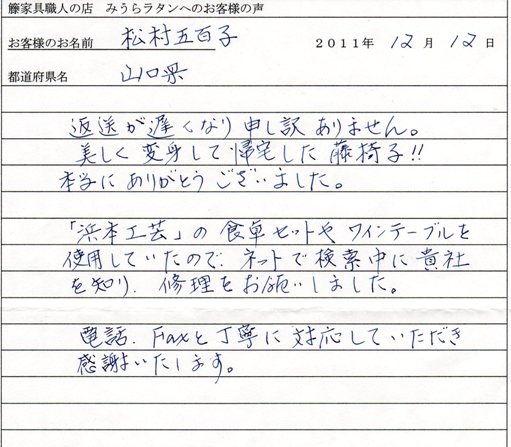 籐家具職人の店 みうらラタンへのお客様の声
お客様のお名前 松村五百子 2011年 12月 12日
都道府県名 山口県
返送が遅くなり申し訳ありません。
美しく変身して帰宅した藤椅子!!
本当にありがとうございました。
「浜本工芸」の食卓セットやワインテーブルを
使用していたので、ネットで検索中に貴社
を知り、修理をお願いしました。
電話、Faxと丁寧に対応していただき
感謝いたします。